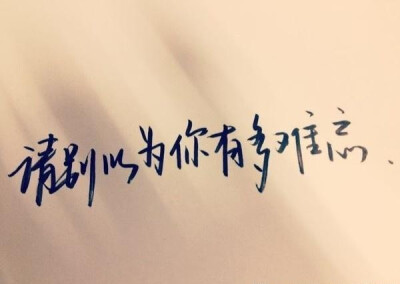 请别以为你有多难忘.